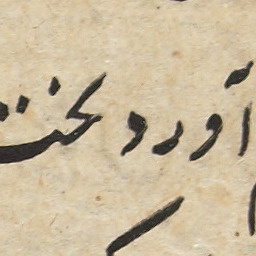 آورد بخت